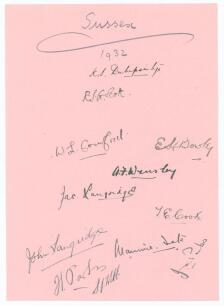 Sussex
1932
K.S. Duleepsinhji
R.S.G. Scott
W L Cornford
E H Bowley
A F Wensley
Jas. Langridge
T E Cook
John Langridge
Maurice Tate
H Parks